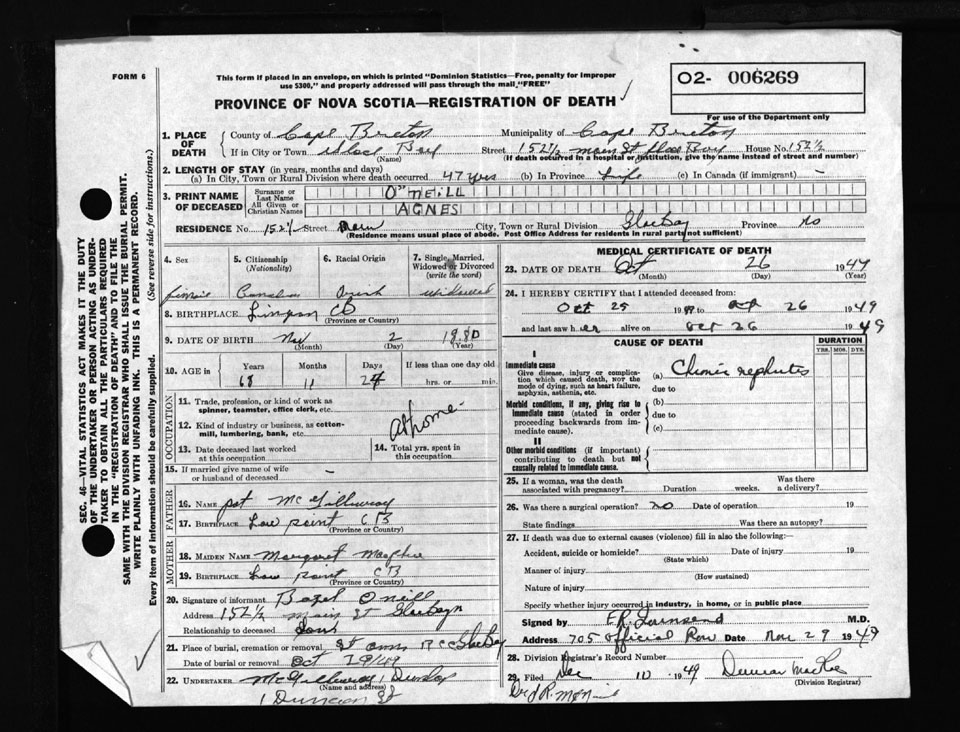 FORM 6
This form if placed in an envelope, on which is printed "Dominion Statistics—Free, penalty for improper
use $300," and properly addressed will pass through the mail "FREE"
02- 006269
For use of the Department only
PROVINCE OF NOVA SCOTIA—REGISTRATION OF DEATH
1. PLACE OF DEATH
County of Cape Breton Municipality of Cape Breton
If in City or Town Glace Bay Street 152½ Main St Glace Bay House No. 152½
(Name) (If death occurred in a hospital or institution, give the name instead of street and number)
2. LENGTH OF STAY (in years, months and days)
(a) In City, Town or Rural Division where death occurred 47 yrs (b) In Province Life (c) In Canada (if immigrant) -
3. PRINT NAME OF DECEASED
Surname or Last Name O'NEILL
All Given or Christian Names AGNES
RESIDENCE No. 152½ Street Main City, Town or Rural Division Glace Bay Province NS
(Residence means usual place of abode. Post Office Address for residents in rural parts not sufficient)
4. Sex 5. Citizenship (Nationality) 6. Racial Origin 7. Single, Married, Widowed or Divorced (write the word)
Canadian Irish Widowed
8. BIRTHPLACE CB
(Province or Country)
9. DATE OF BIRTH Nov 2 1880
(Month) (Day) (Year)
10. AGE in Years Months Days If less than one day old
68 11 24 hrs. or min.
OCCUPATION
11. Trade, profession, or kind of work as
spinner, teamster, office clerk, etc.
12. Kind of industry or business, as cotton-
mill, lumbering, bank, etc.
At home
13. Date deceased last worked
at this occupation
14. Total yrs. spent in
this occupation
15. If married give name of wife
or husband of deceased -
FATHER
16. Name Pat McGillivray
17. Birthplace Low point CB
(Province or Country)
MOTHER
18. MAIDEN NAME Margaret
19. BIRTHPLACE Low point CB
(Province or Country)
20. Signature of informant O'Neill
Address 152½ Main St Glace Bay
Relationship to deceased Son
21. Place of burial, cremation or removal St Anns RCC Glace Bay
Date of burial or removal Oct /49
22. UNDERTAKER McGillivray
(Name and address)
MEDICAL CERTIFICATE OF DEATH
23. DATE OF DEATH Oct 26 1949
(Month) (Day) (Year)
24. I HEREBY CERTIFY that I attended deceased from:
Oct 25 1949 to Oct 26 1949
and last saw her alive on Oct 26 1949
CAUSE OF DEATH DURATION
YRS. MOS. DYS.
I
Immediate cause
Give disease, injury or compli-
cation which caused death, NOT the
mode of dying, such as heart failure,
asphyxia, asthenia, etc.
(a) Chronic nephritis
due to
Morbid conditions, if any, giving rise to
immediate cause (stated in order
proceeding backwards from im-
mediate cause).
(b)
due to
(c)
II
Other morbid conditions (if important)
contributing to death but not
causally related to immediate cause.
25. If a woman, was the death
associated with pregnancy? Duration weeks. Was there
a delivery?
26. Was there a surgical operation? no Date of operation 19
State findings Was there an autopsy?
27. If death was due to external causes (violence) fill in also the following:—
Accident, suicide or homicide? Date of injury 19
(State which)
Manner of injury
(How sustained)
Nature of injury
Specify whether injury occurred in industry, in home, or in public place
Signed by Townsend M.D.
Address 705 Official Row Date Nov 29 1949
28. Division Registrar's Record Number
29. Filed Dec 10 1949 Duncan
(Division Registrar)
SEC. 46—VITAL STATISTICS ACT MAKES IT THE DUTY
OF THE UNDERTAKER OR PERSON ACTING AS UNDER-
TAKER TO OBTAIN ALL THE PARTICULARS REQUIRED
IN THE "REGISTRATION OF DEATH" AND TO FILE THE
SAME WITH THE DIVISION REGISTRAR WHO SHALL ISSUE THE BURIAL PERMIT.
WRITE PLAINLY WITH UNFADING INK. THIS IS A PERMANENT RECORD.
Every item of information should be carefully supplied. (See reverse side for instructions.)